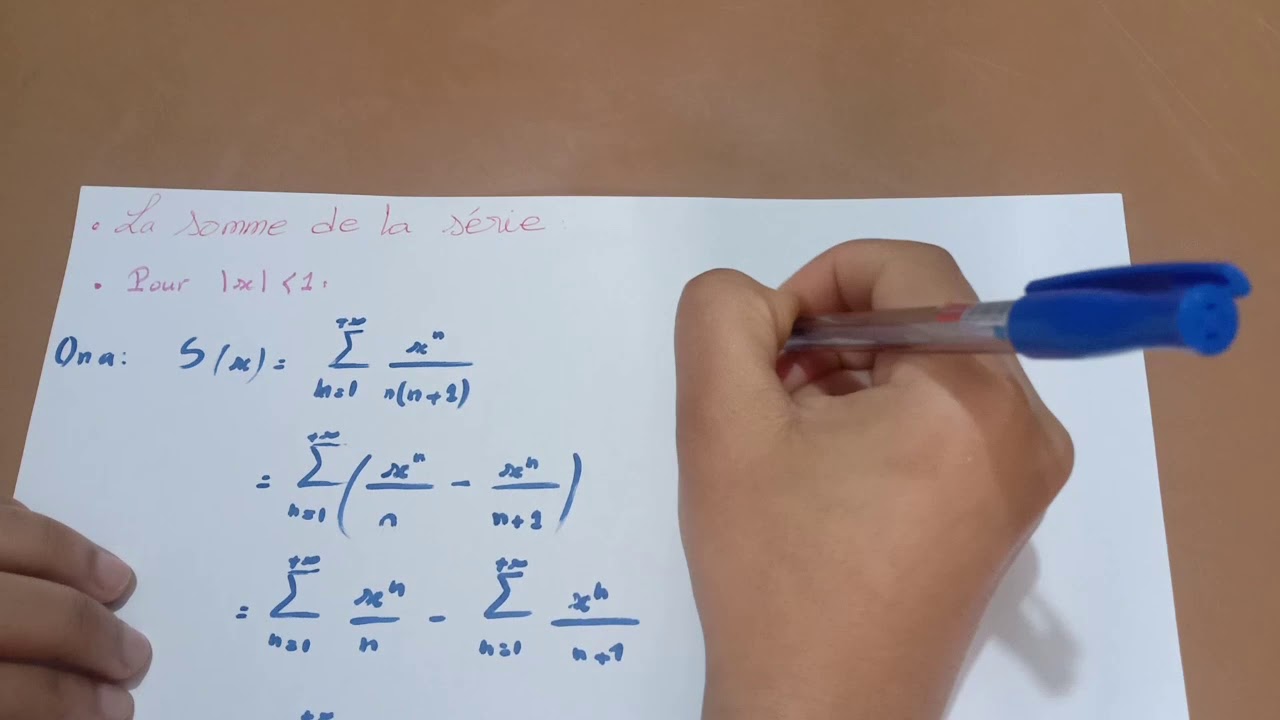 • La somme de la série :
• Pour |x| < 1.
On a : S(x) = \sum_{n=1}^{+∞} \frac{x^n}{n(n+1)}
= \sum_{n=1}^{+∞} ( \frac{x^n}{n} - \frac{x^n}{n+1} )
= \sum_{n=1}^{+∞} \frac{x^n}{n} - \sum_{n=1}^{+∞} \frac{x^n}{n+1}
+∞